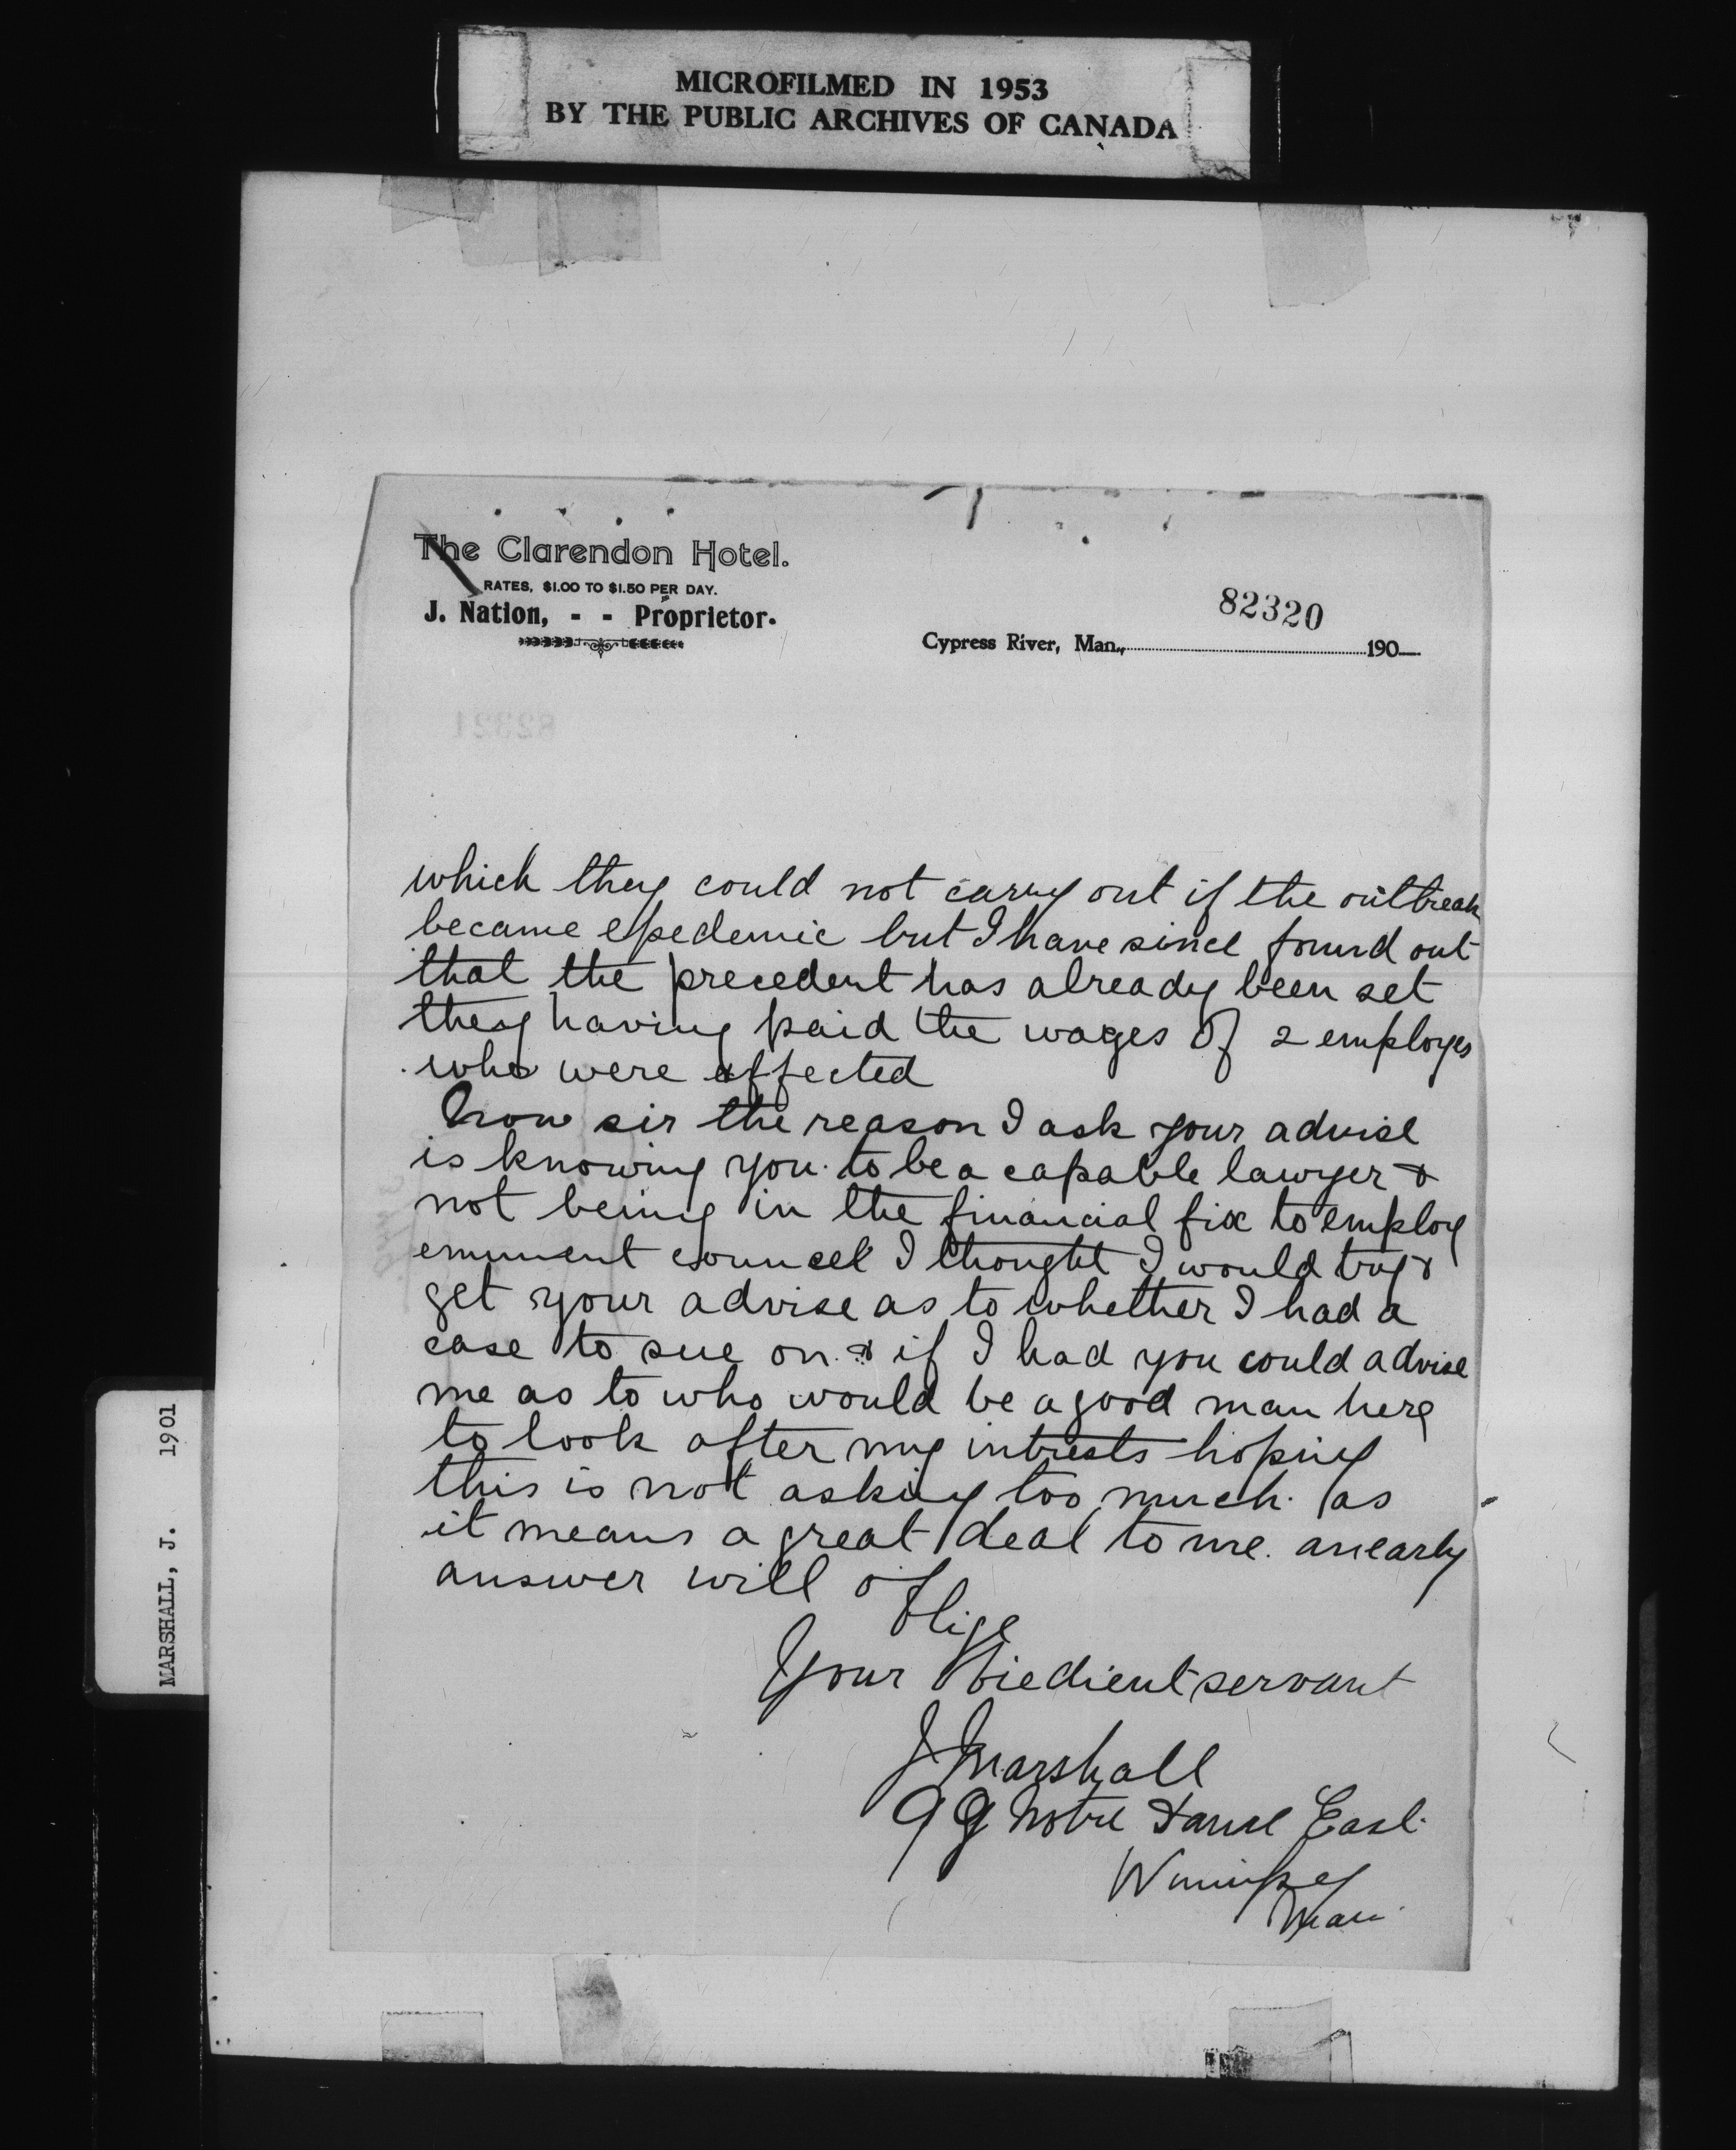 MICROFILMED IN 1953
BY THE PUBLIC ARCHIVES OF CANADA
The Clarendon Hotel.
RATES, $1.00 TO $1.50 PER DAY.
J. Nation, - - Proprietor.
82320
Cypress River, Man., 190—
82321
which they could not carry out if the outbreak
became epedemic but I have since found out
that the precedent has already been set
they having paid the wages of 2 employes
who were affected
Now sir the reason I ask your advise
is knowing you to be a capable lawyer &
not being in the financial fix to employ
eminent councel I thought I would try &
get your advise as to whether I had a
case to sue on & if I had you could advise
me as to who would be a good man here
to look after my intrests hoping
this is not asking too much as
it means a great deal to me. an early
answer will
oblige
Your Obiedient servant
J Marshall
99 Notre Dame East.
Winnipeg
Man.
MARSHALL, J. 1901